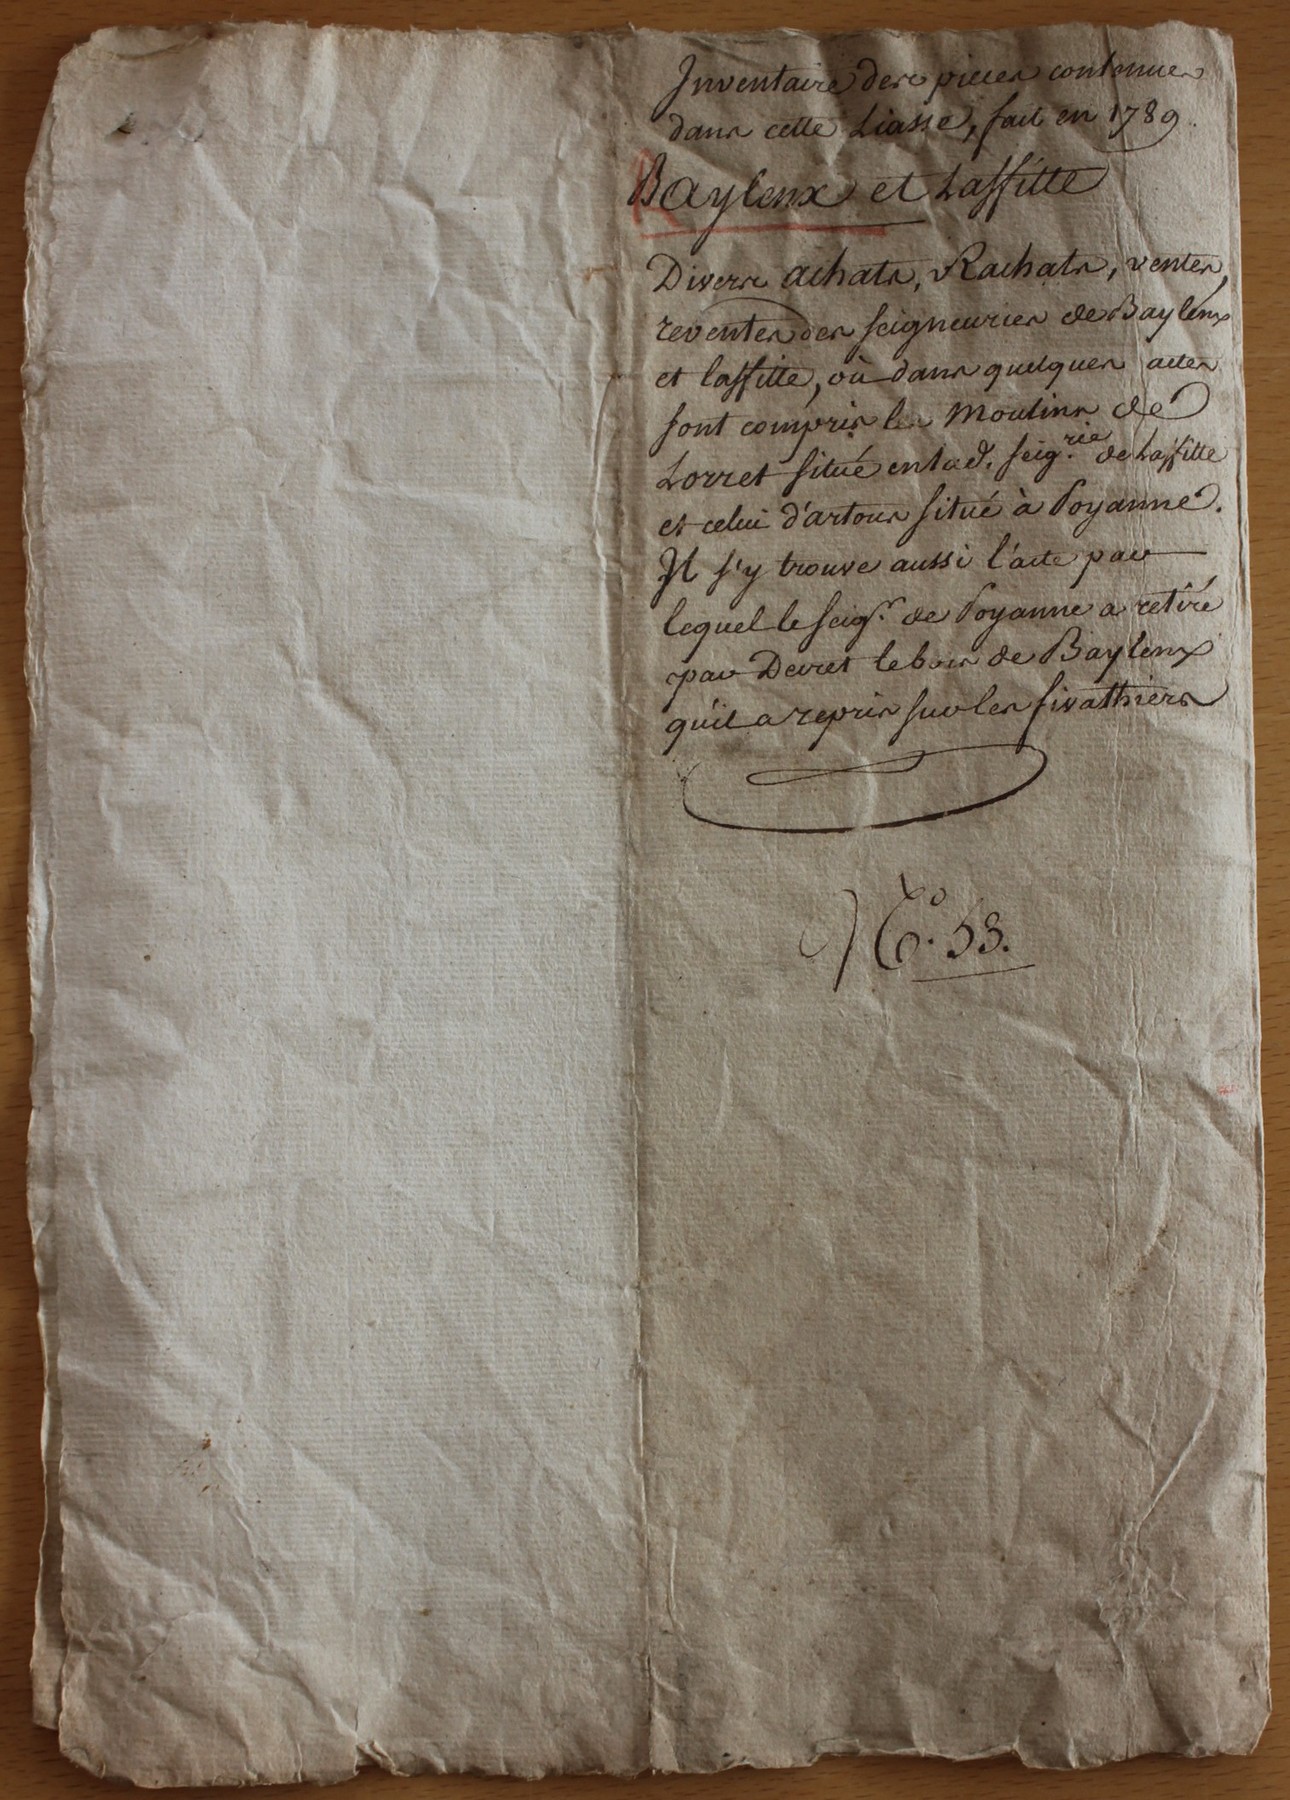 Inventaire des pieces contenues
dans cette Liasse, fait en 1789.
Baylenx et Laffitte
Divers achats, Rachats, ventes,
reventes des seigneuries de Baylenx
et laffitte, où dans quelques actes
sont compris les Moulins de
Lorret situé en lad. seig.rie de Laffitte
et celui d'artous situé à Poyanne.
Il s'y trouve aussi l'acte par
lequel le seig.r de Poyanne a retiré
par Decret le bois de Baylenx
qu'il a repris sur les fivathiers
N.o 53.